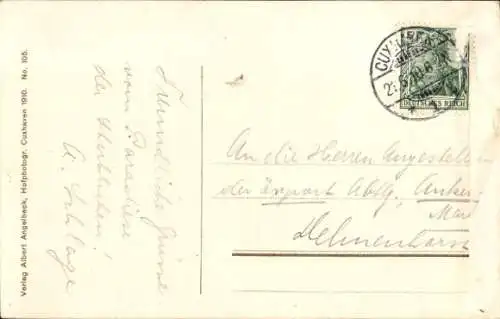 Verlag Albert Angelbeck, Hofphotogr. Cuxhaven 1910. No. 105.
Freundliche Grüsse
vom Paradiese
der
A. Schlage
CUXHAVEN
DEUTSCHES REICH
An die Herren Angestellten
der Export Abtlg. Anker
Delmenhorst